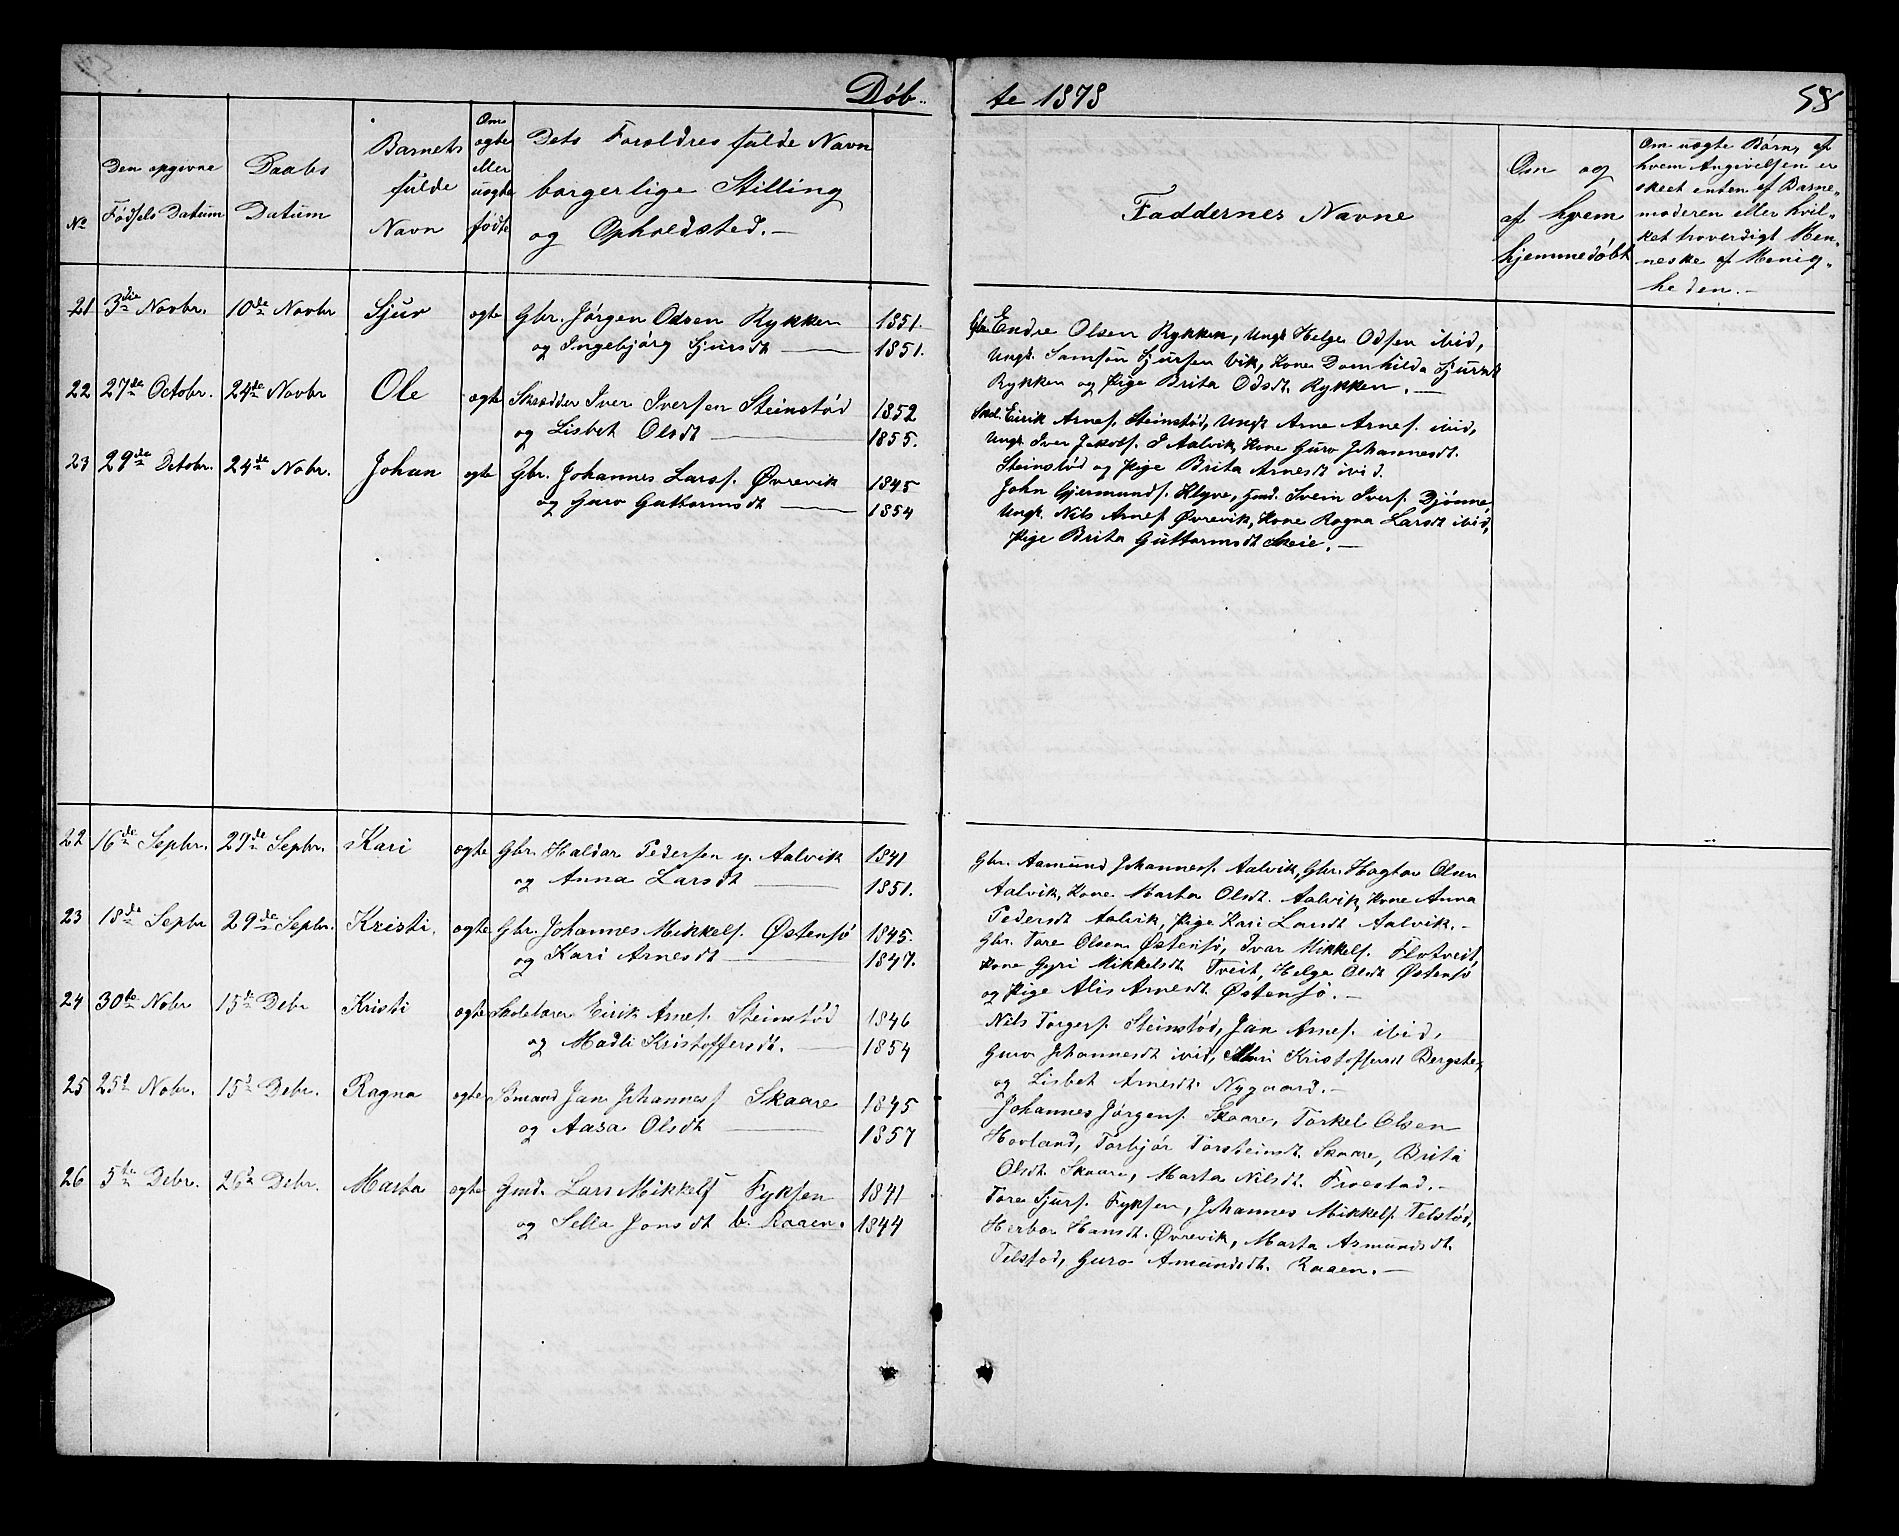 Døb-
te 1878
58
No
Den opgivne
Fødsels Datum
Daabs
Datum
Barnets
fulde
Navn
Om
ægte
eller
uægte
født
Dets Forældres fulde Navn
borgerlige Stilling
og Opholdsted.-
Faddernes Navne
Om og
af hvem
hjemmedøbt
Om uægte Børn, af
hvem Angivelsen er
skeet enten af Barne-
moderen eller hvil-
ket troverdigt Men-
neske af Menig-
heden.-
21 3die Novbr. 10de Novbr Sjur ægte Gbr. Jørgen Odsen Rykken 1851.
og Ingebjørg Sjursdt 1851.
Gbr. Endre Olsen Rykken, Ungk Helge Odsen ibid,
Ungk. Samson Sjursen Vik, Kone Domhilda Sjursdt
Rykken og Pige Brita Odsdt. Rykken.-
22 27de Octobr. 24de Novbr Ole ægte Skrædder Iver Iversen Steinstød 1852
og Lisbet Olsdt 1855.
Skol. Eirik Arnes. Steinstød, Ungk Arne Arnes. ibid,
Ungk. Iver Jakobs. I Aalvik, Kone Guro Johannesdt.
Steinstød og Pige Brita Arnesdt ibid.
23 29de Octobr. 24de Nobr. Johan ægte Gbr. Johannes Larss. Øvrevik 1845
og Guro Guttormsdt 1854
John Gjermunds. Klyve, Gmd. Svein Ivers. Djønne,
Ungk. Nils Arnes. Øvrevik, Kone Ragna Larsdt ibid,
Pige Brita Guttormsdt Skeie.-
22 16de Sepbr. 29de Sepbr. Kari ægte Gbr. Haldor Pedersen y. Aalvik 1841
og Anna Larsdt 1851.
Gbr. Aamund Johanness. Aalvik, Gbr. Hagtor Olsen
Aalvik, Kone Marta Olsdt. Aalvik, Kone Anna
Pedersdt Aalvik, Pige Kari Larsdt Aalvik.-
23 18de Sepbr 29de Sepbr. Kristi. ægte Gbr. Johannes Mikkels. Østensø 1845.
og Kari Arnesdt 1847.
Gbr. Tore Olsen Østensø, Ivar Mikkels. Flotveit,
Kone Gyri Mikkelsdt. Tveit, Helga Olsdt Østensø
og Pige Alis Arnesdt. Østensø.-
24 30te Nobr 15de Debr Kristi ægte Skolelærer Eirik Arnes. Steinstød 1846
og Madli Kristoffersdt. 1854
Nils Torgers. Steinstød, Jan Arnes. ibid,
Guro Johannesdt ibid, Mari Kristoffersdt
og Lisbet Arnesdt. Nygaard.-
25 25d Nobr. 15d Debr. Ragna ægte Sømand Jan Johanness Skaare 1845
og Aasa Olsdt 1857
Johannes Jørgens. Skaare, Torkel Olsen
Hovland, Torbjør Torsteinsdt. Skaare, Brita
Olsdt. Skaare, Marta Nilsdt. Froestad.-
26 5te Debr. 26d Debr. Marta ægte Gmd. Lars Mikkels Fyksen 1841
og Sella Jonsdt b. Raaen. 1844
Tore Sjurs. Fyksen, Johannes Mikkels. Telstød,
Herbor Hansdt. Øvrevik, Marta Asmundsdt.
Telstød, Guro Amundsdt. Raaen.-